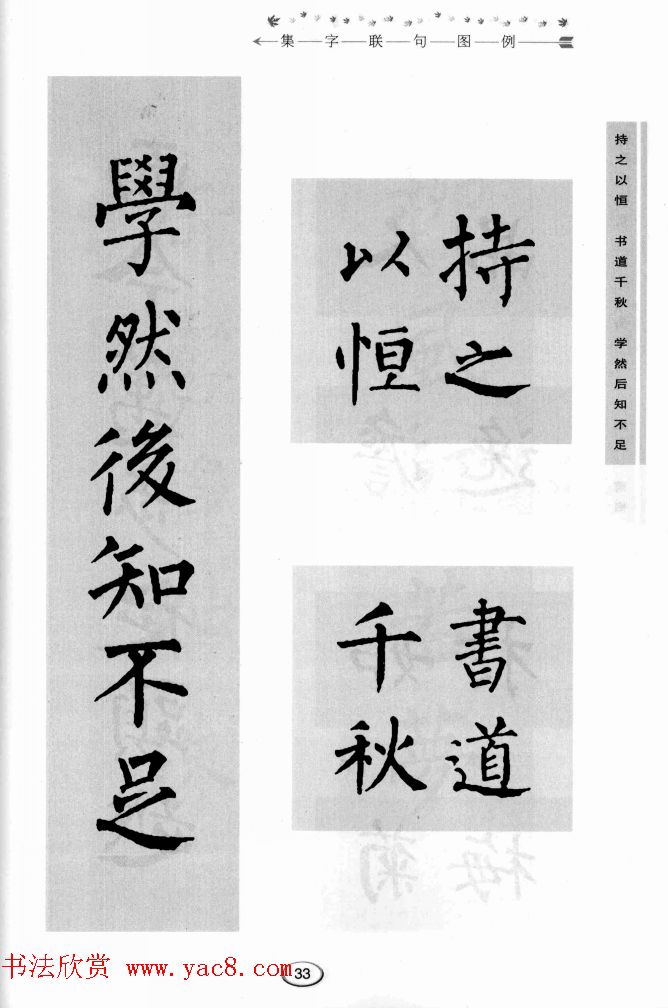 集字联句图例
持之以恒 书道千秋 学然后知不足
持之
以恒
書道
千秋
學然後知不足
书法欣赏 www.yac8.com
33